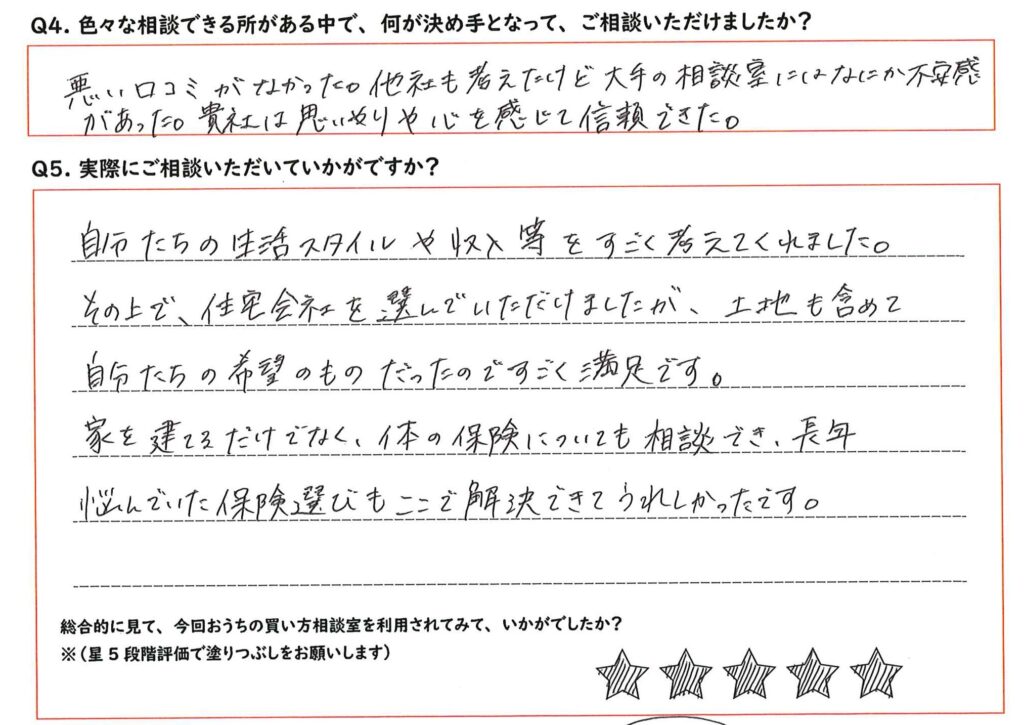 Q4. 色々な相談できる所がある中で、何が決め手となって、ご相談いただけましたか?
悪い口コミがなかった。他社も考えたけど大手の相談室にはなにか不安感
があった。貴社は思いやりや心を感じて信頼できた。
Q5. 実際にご相談いただいていかがですか?
自分たちの生活スタイルや収入等をすごく考えてくれました。
その上で、住宅会社を選んでいただけましたが、土地も含めて
自分たちの希望のものだったのですごく満足です。
家を建てるだけでなく、体の保険についても相談でき、長年
悩んでいた保険選びもここで解決できてうれしかったです。
総合的に見て、今回おうちの買い方相談室を利用されてみて、いかがでしたか?
※(星5段階評価で塗りつぶしをお願いします)